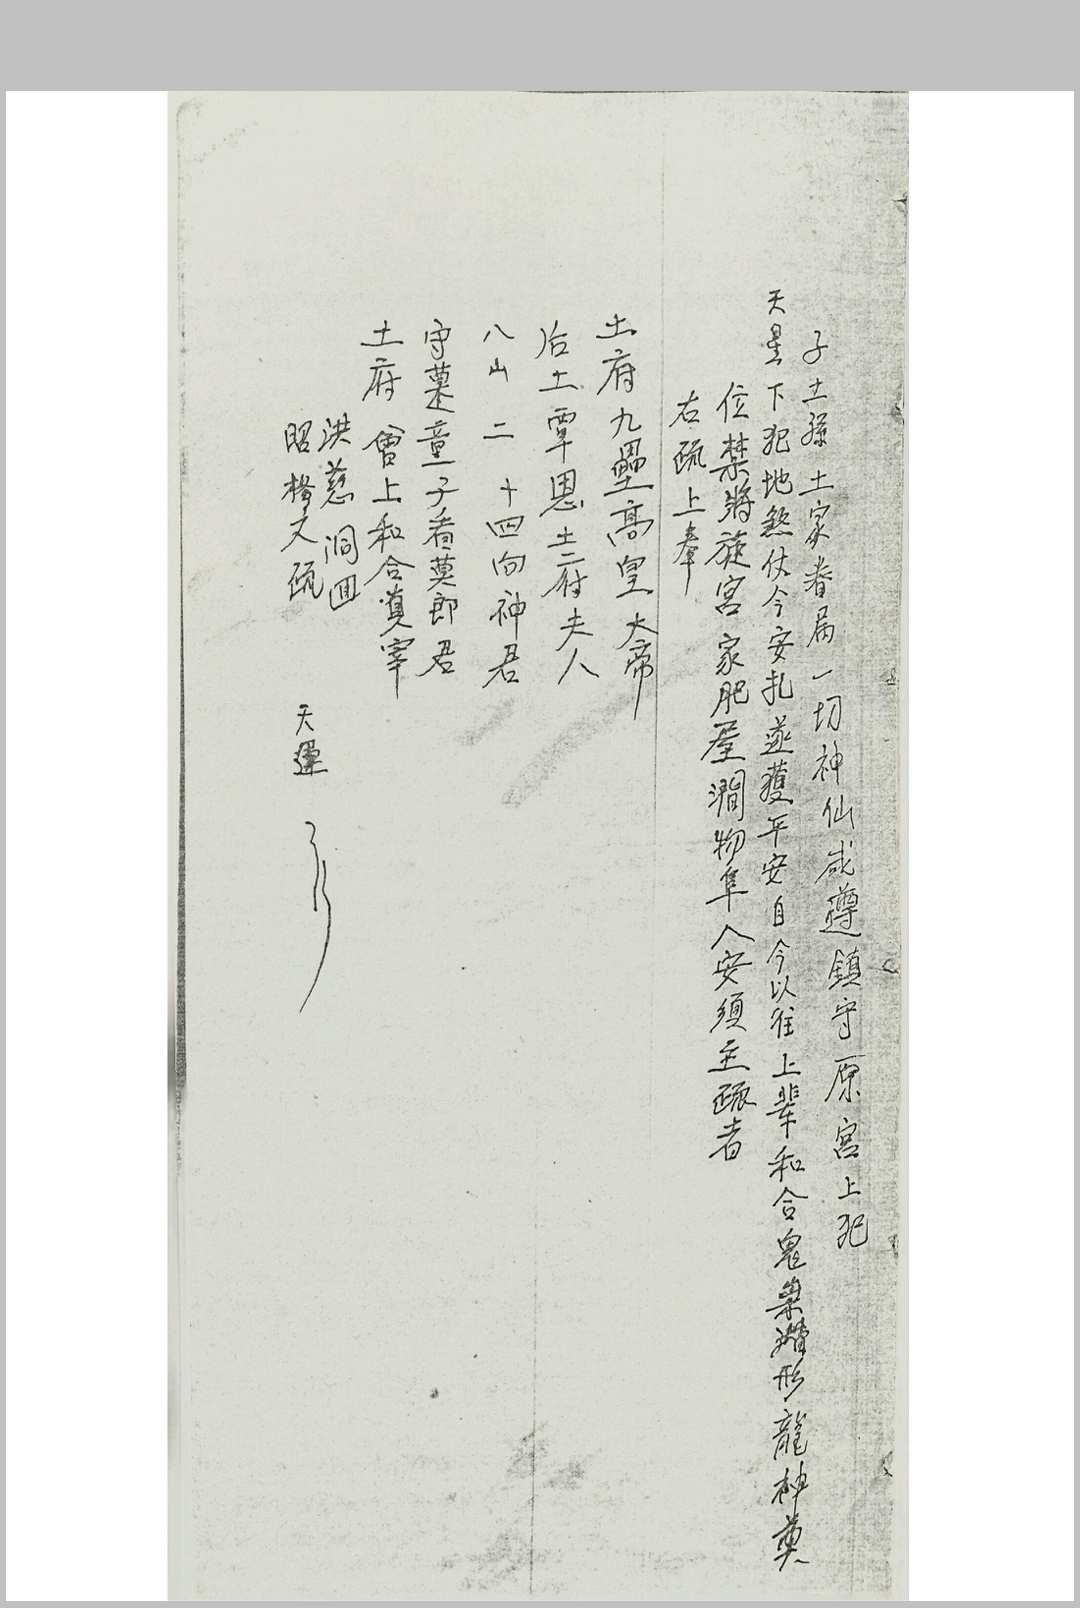 子土孫土家眷屬一切神仙咸遵鎮守原宮上犯
天星下犯地煞仗今安扎並獲平安自今以往上輩和合鬼祟潛形龍神奠
位禁將旋宮家肥屋潤物阜人安須至疏者
右疏上奉
土府九壘高皇大帝
后土覃恩土府夫人
八山二十四向神君
守墓童子看墓郎君
土府會上和合真宰
洪慈洞回
昭格文疏
天運